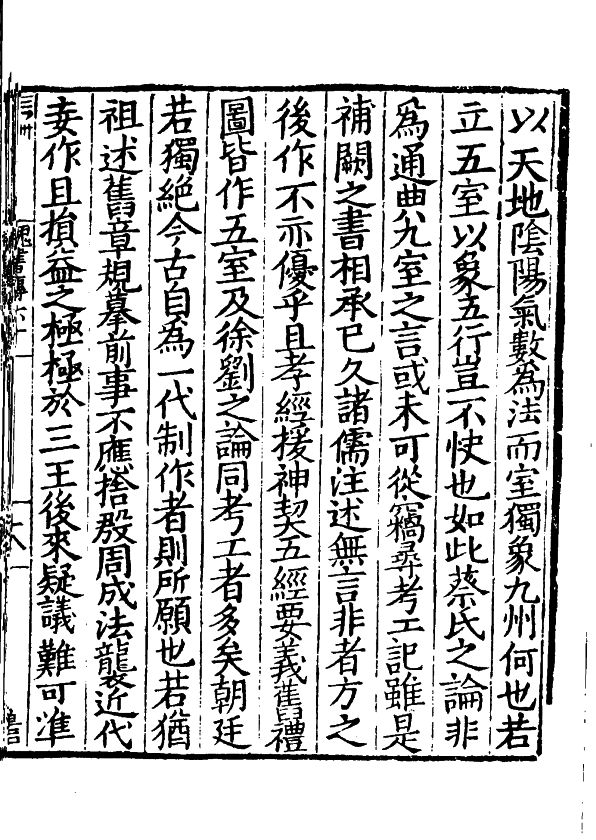 以天地陰陽氣數為法而室獨象九州何也若
立五室以象五行豈不快也如此蔡氏之論非
為通典九室之言或未可從竊尋考工記雖是
補闕之書相承已久諸儒注述無言非者方之
後作不亦優乎且孝經援神契五經要義舊禮
圖皆作五室及徐劉之論同考工者多矣朝廷
若獨絕今古自為一代制作者則所願也若猶
祖述舊章規摹前事不應捨殷周成法襲近代
妄作且損益之極極於三王後來疑議難可准